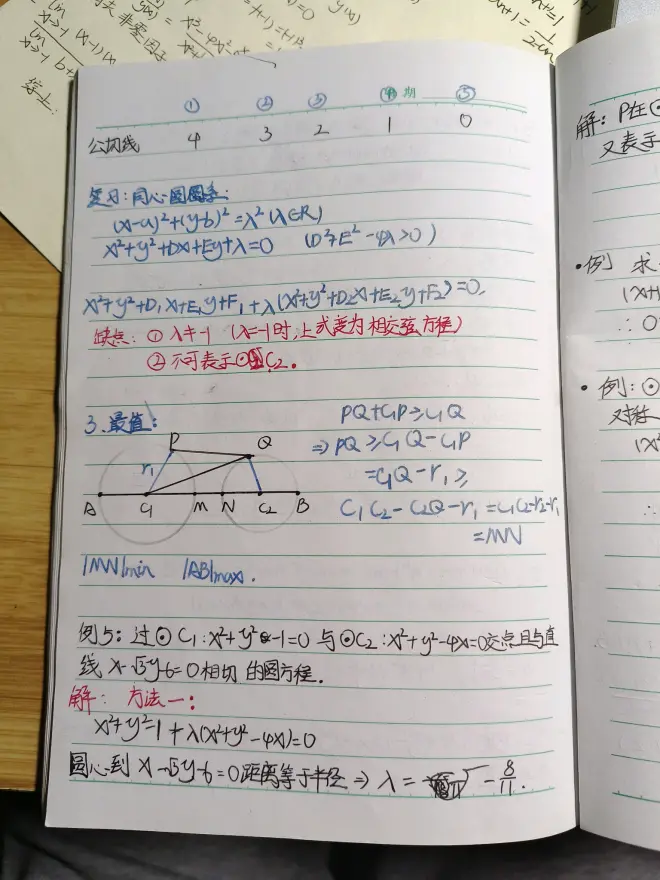 ① ② ③ ④ ⑤
公切线 4 3 2 1 0
复习:同心圆圆系:
(x-a)²+(y-b)²=λ²(λ∈R)
x²+y²+Dx+Ey+λ=0 (D²+E²-4λ>0)
x²+y²+D₁x+E₁y+F₁+λ(x²+y²+D₂x+E₂y+F₂)=0.
缺点:① λ≠-1 (λ=-1时,上式变为相交弦方程)
② 不可表示⊙C₂.
3.最值:
PQ+C₁P≥C₁Q
⇒PQ≥C₁Q-C₁P
=C₁Q-r₁≥
C₁C₂-C₂Q-r₁=C₁C₂-r₂-r₁
=MN
P Q
r₁
A C₁ M N C₂ B
|MN|min |AB|max.
例5:过⊙C₁:x²+y²-1=0与⊙C₂:x²+y²-4x=0交点且与直
线x-√3y-6=0相切的圆方程.
解: 方法一:
x²+y²-1+λ(x²+y²-4x)=0
圆心到x-√3y-6=0距离等于半径⇒λ= -8/11.
解:P在⊙
又表示
·例 求
(x+
∴⊙
·例:⊙
对称
(x²
∴